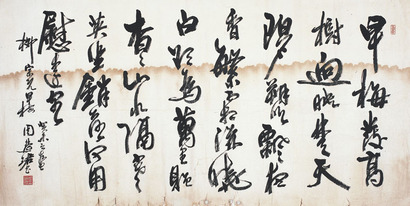 早梅發高
樹迥映楚天
碧朔吹飄夜
香繁霜滋曉
白欲為萬里贈
杳杳山水隔寒
英坐銷落何用
慰遠客
柳宗元早梅
癸未
周慧珺